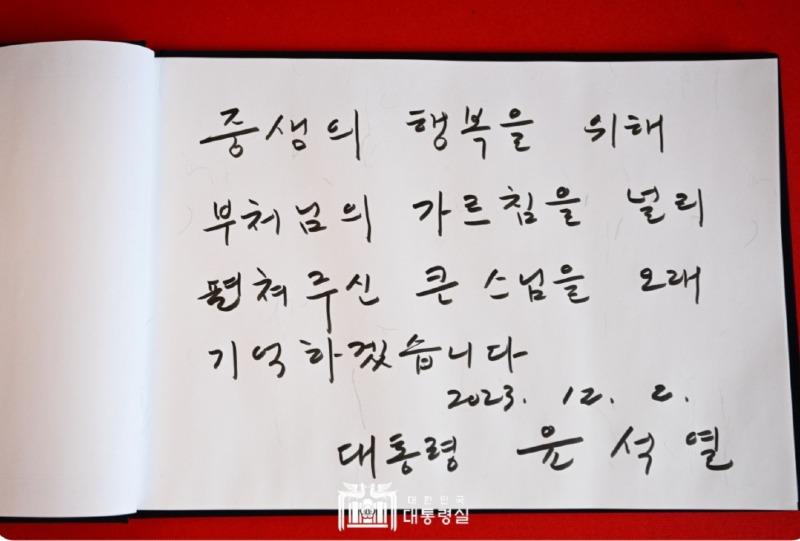 중생의 행복을 위해
부처님의 가르침을 널리
펼쳐주신 큰 스님을 오래
기억하겠습니다
2023. 12. 2.
대통령 윤석열
대한민국
대통령실